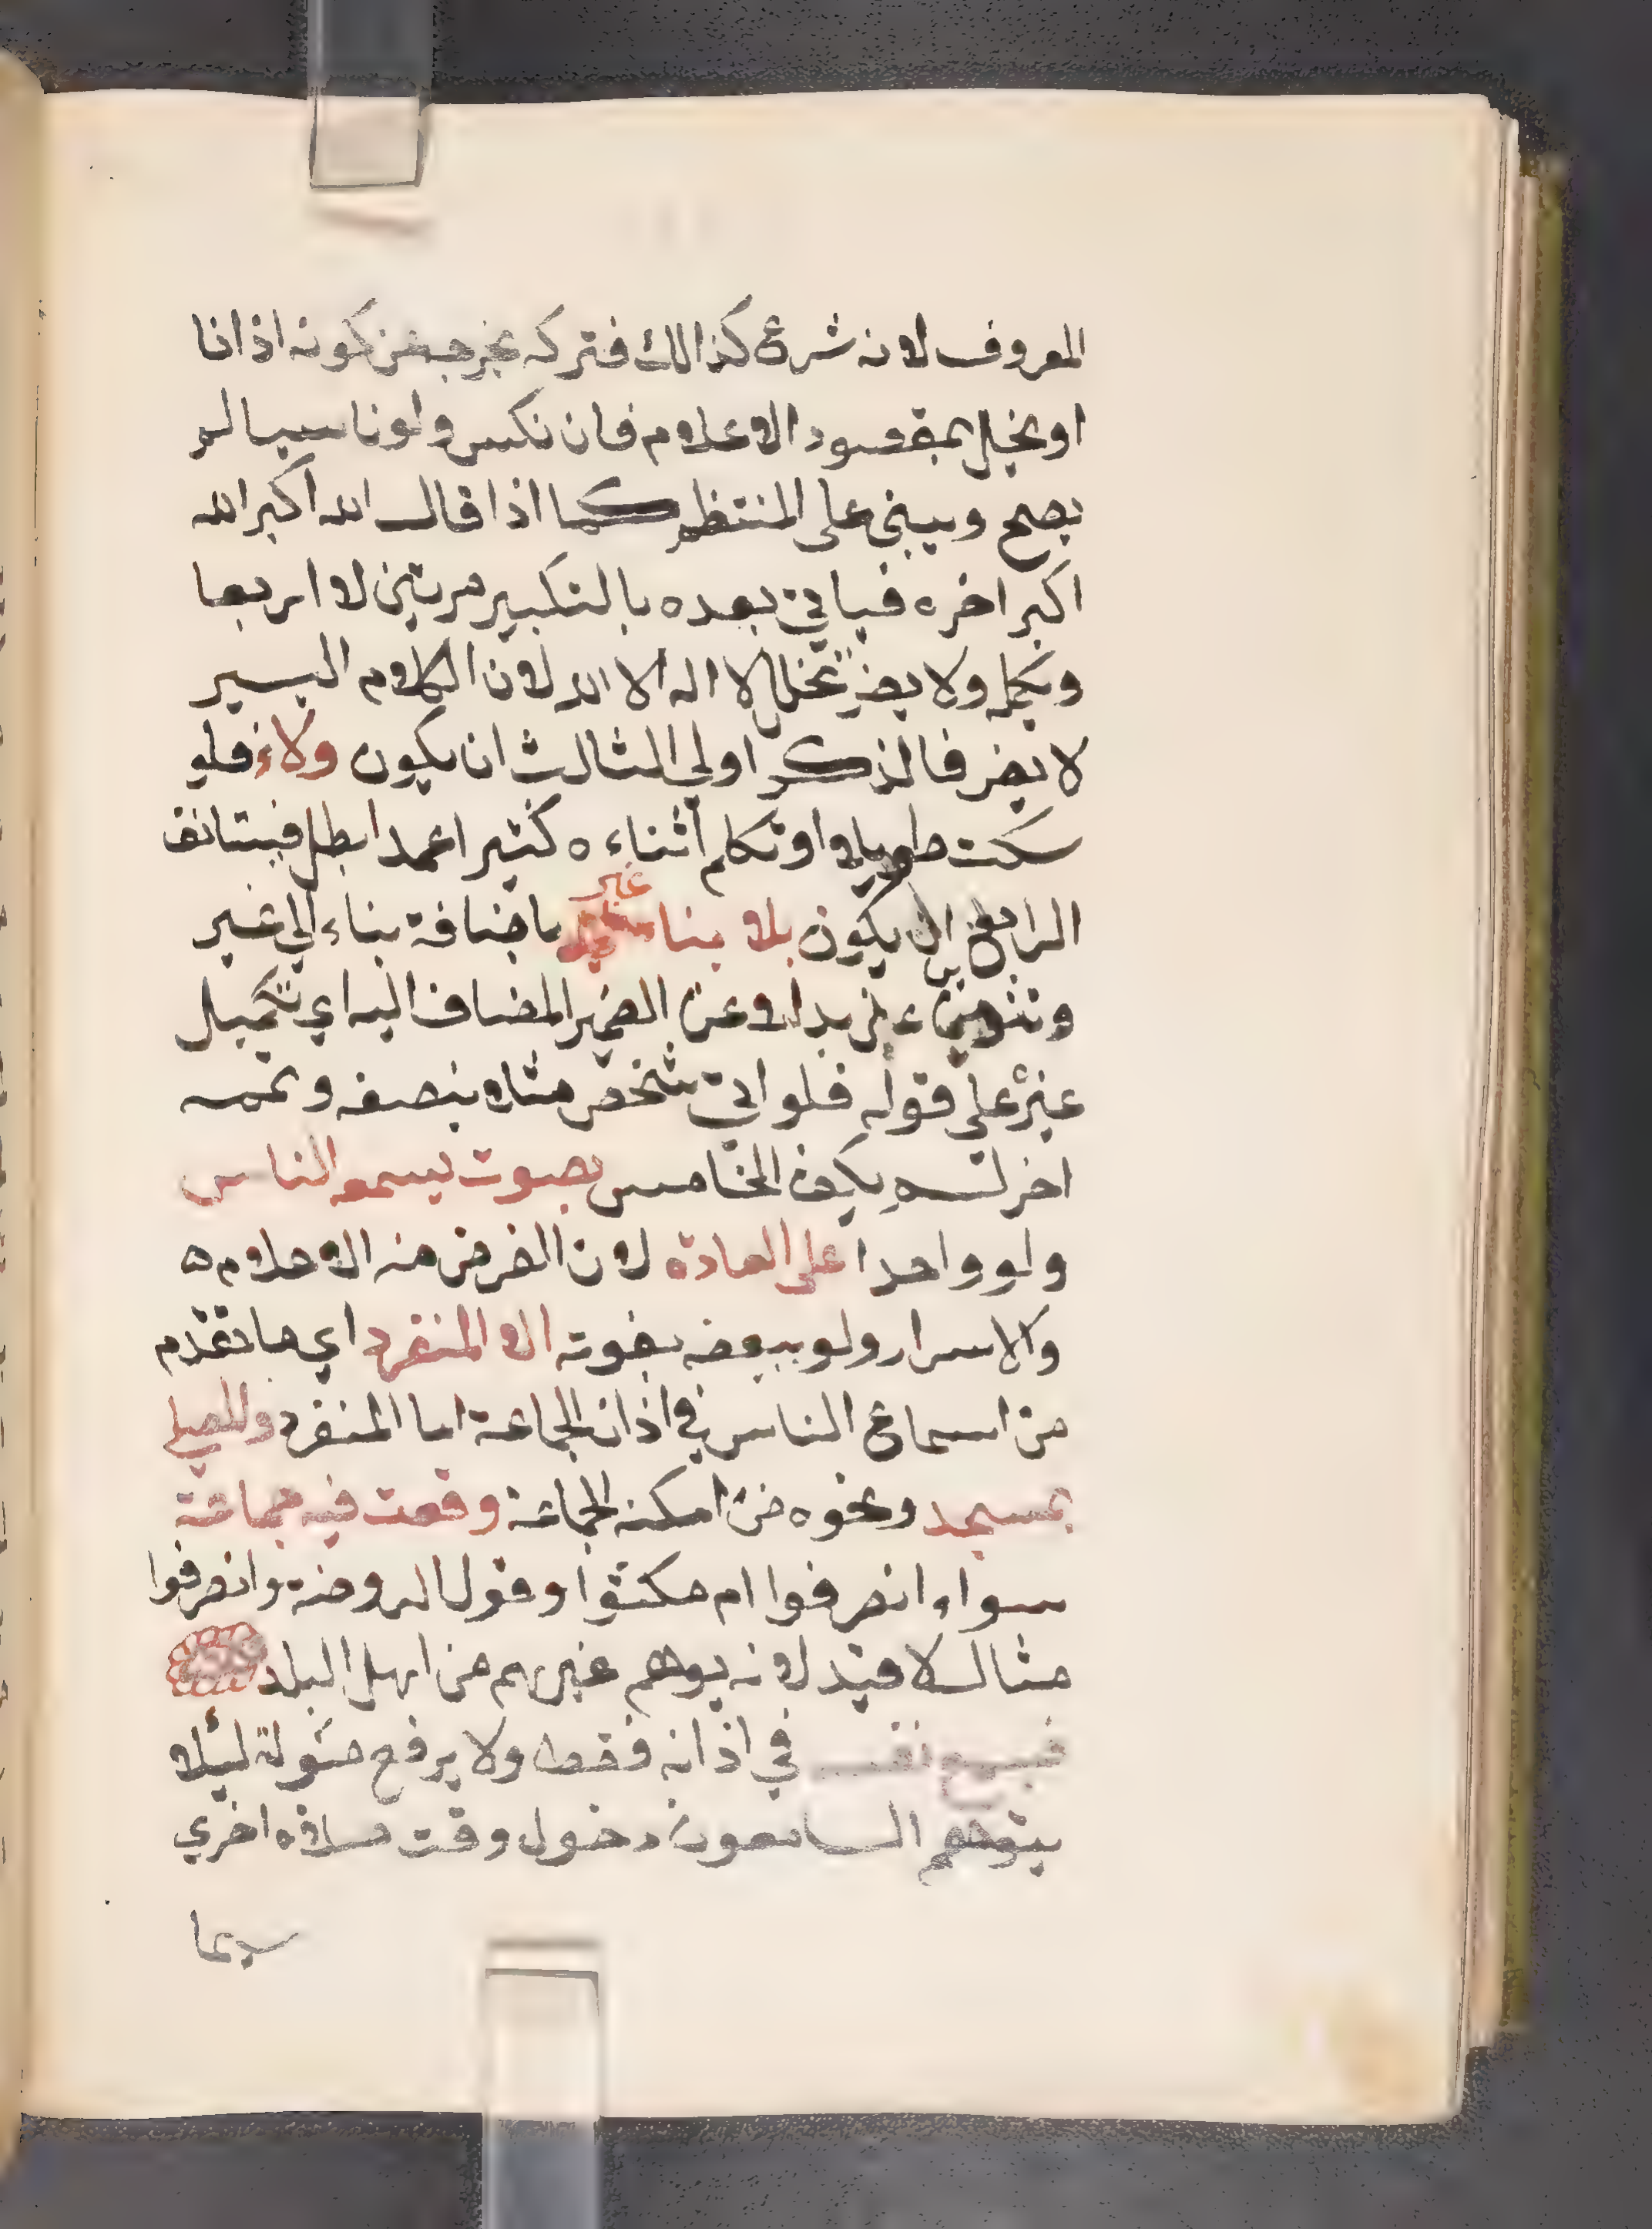 المعروف لانه شرع كذالك فتركه يخرجه عن كونه اذانا
او يخل بمقصود الاعلام فان نكس ولو ناسيا لم
يصح ويبني على المنتظم كما اذا قال الله اكبر الله
اكبر اخره فياتي بعده بالتكبير مرتين لا اربعا
ويكمله ولا يضر تخلل لا اله الا الله لان الكلام اليسير
لا يضر فالذكر اولي الثالث ان يكون ولاء فلو
سكت طويلا او تكلم أثناءه كثيرا عمدا بطل فيستانف
الرابع ان يكون بلا بناء غير باضافة بناء الي غير
وتنوين غير بدلا عن الضمير المضاف اليه اي تكميل
غير على قوله فلو اتي شخص مثلا بنصفه وتممه
اخر لم يكف الخامس بصوت يسمعه الناس
ولو واحدا على العادة لان الغرض منه الاعلام ه
والاسرار ولو ببعضه يفوته الا المنفرد اي ما تقدم
من اسماع الناس في اذان الجماعة اما المنفرد والمصلي
بمسجد ونحوه من امكنة الجماعة وقعت فيه جماعة
سواء انصرفوا ام مكثوا وقول الروضة وانصرفوا
مثال لا قيد لانه يوهم غيرهم من اهل البلد
فيسمع نفسه في اذانه فقط ولا يرفع صوته لئلا
يتوهم السامعون دخول وقت صلاة اخري
سيما